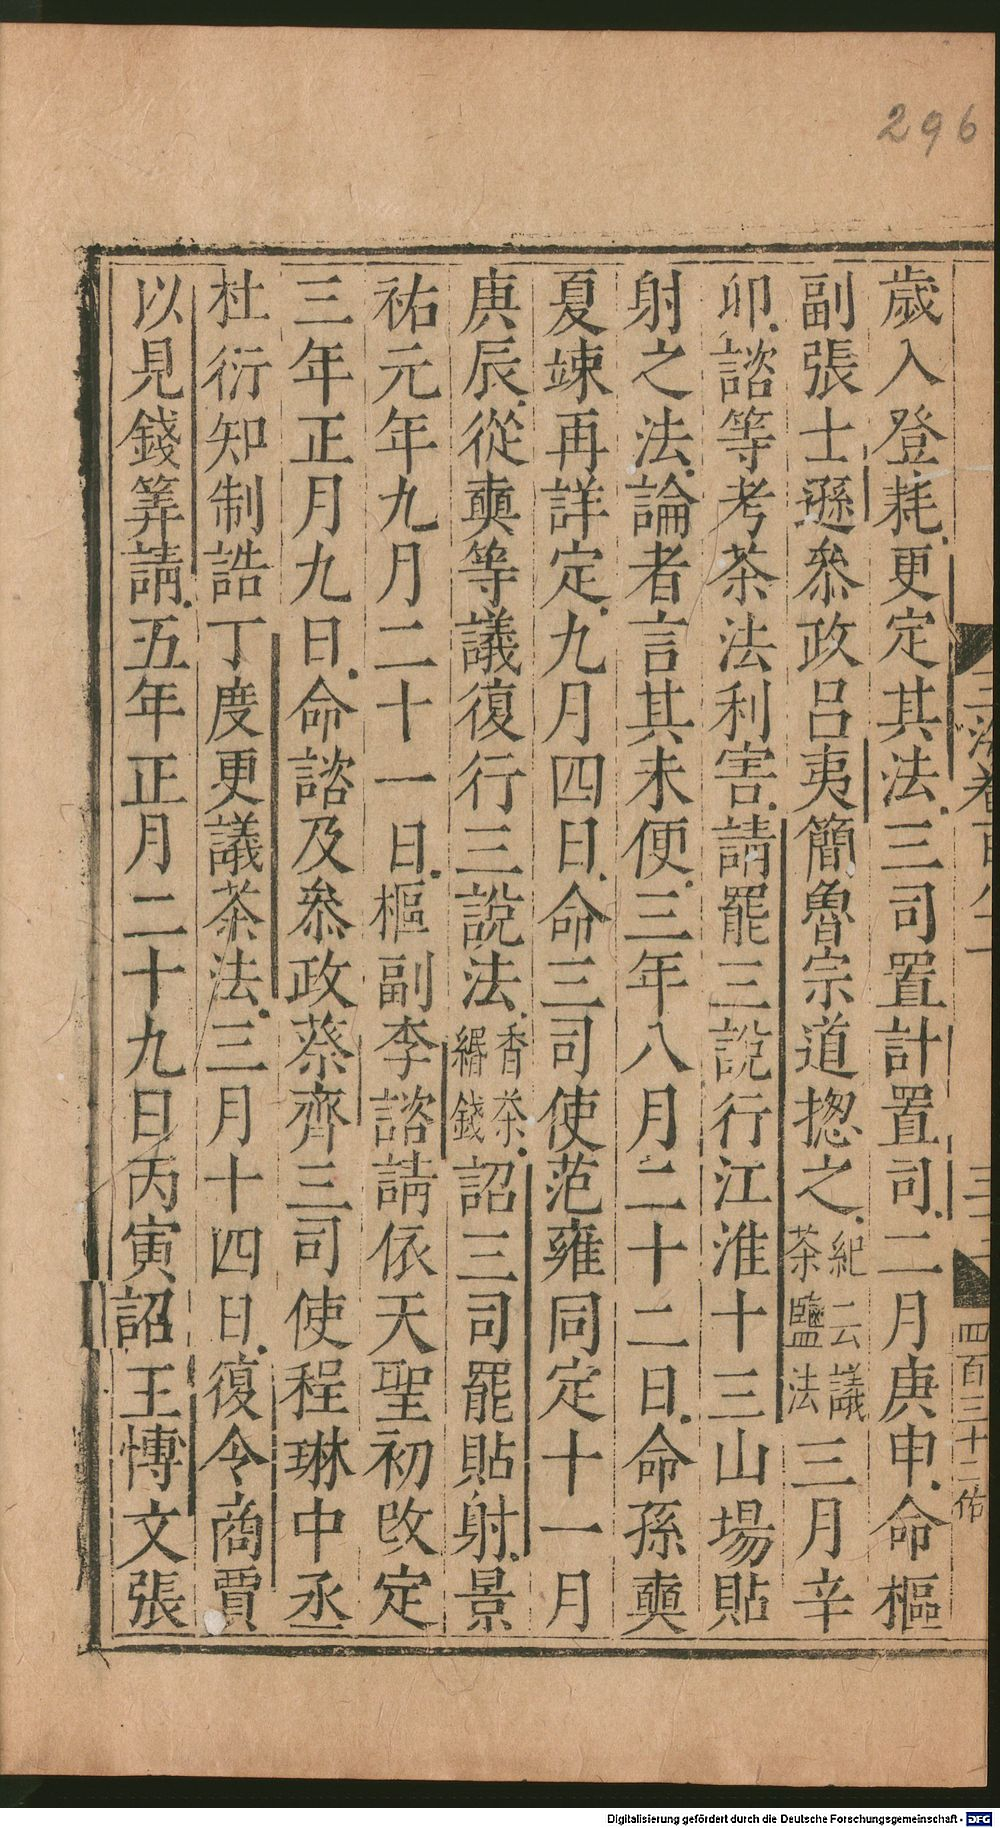 296
歲入登耗更定其法三司置計置司二月庚申命樞
副張士遜叅政呂夷簡魯宗道揔之紀云議茶鹽法三月辛
卯諮等考茶法利害請罷三說行江淮十三山場貼
射之法論者言其未便三年八月二十二日命孫奭
夏竦再詳定九月四日命三司使范雍同定十一月
庚辰從奭等議復行三說法香茶緡錢詔三司罷貼射景
祐元年九月二十一日樞副李諮請依天聖初改定
三年正月九日命諮及叅政蔡齊三司使程琳中丞
杜衍知制誥丁度更議茶法三月十四日復令商賈
以見錢筭請五年正月二十九日丙寅詔王博文張
四百三十二佑
Digitalisierung gefördert durch die Deutsche Forschungsgemeinschaft - DFG